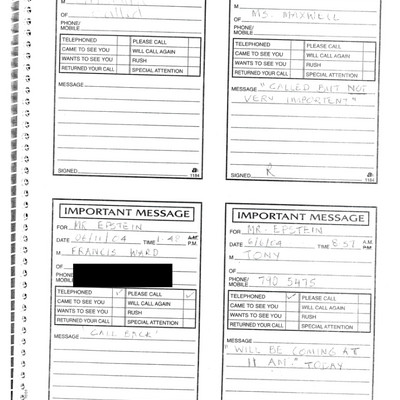 OF
PHONE/
MOBILE
TELEPHONED PLEASE CALL
CAME TO SEE YOU WILL CALL AGAIN
WANTS TO SEE YOU RUSH
RETURNED YOUR CALL SPECIAL ATTENTION
MESSAGE
SIGNED
1184
M
MS. MAXWELL
OF
PHONE/
MOBILE
TELEPHONED PLEASE CALL
CAME TO SEE YOU WILL CALL AGAIN
WANTS TO SEE YOU RUSH
RETURNED YOUR CALL SPECIAL ATTENTION
MESSAGE "CALLED BUT NOT
VERY IMPORTENT"
SIGNED
1184
IMPORTANT MESSAGE
FOR MR EPSTEIN
DATE 06/11/04 TIME 1:48 A.M.
P.M.
M FRANCIS WARD
OF
PHONE/
MOBILE
TELEPHONED ✓ PLEASE CALL ✓
CAME TO SEE YOU WILL CALL AGAIN
WANTS TO SEE YOU RUSH
RETURNED YOUR CALL SPECIAL ATTENTION
MESSAGE CALL BACK!
IMPORTANT MESSAGE
FOR MR. EPSTEIN
DATE 6/6/04 TIME 8:57 A.M.
P.M.
M TONY
OF
PHONE/
MOBILE 790 5475
TELEPHONED ✓ PLEASE CALL
CAME TO SEE YOU WILL CALL AGAIN
WANTS TO SEE YOU RUSH
RETURNED YOUR CALL SPECIAL ATTENTION
MESSAGE
"WILL BE COMING AT
11 AM." TODAY